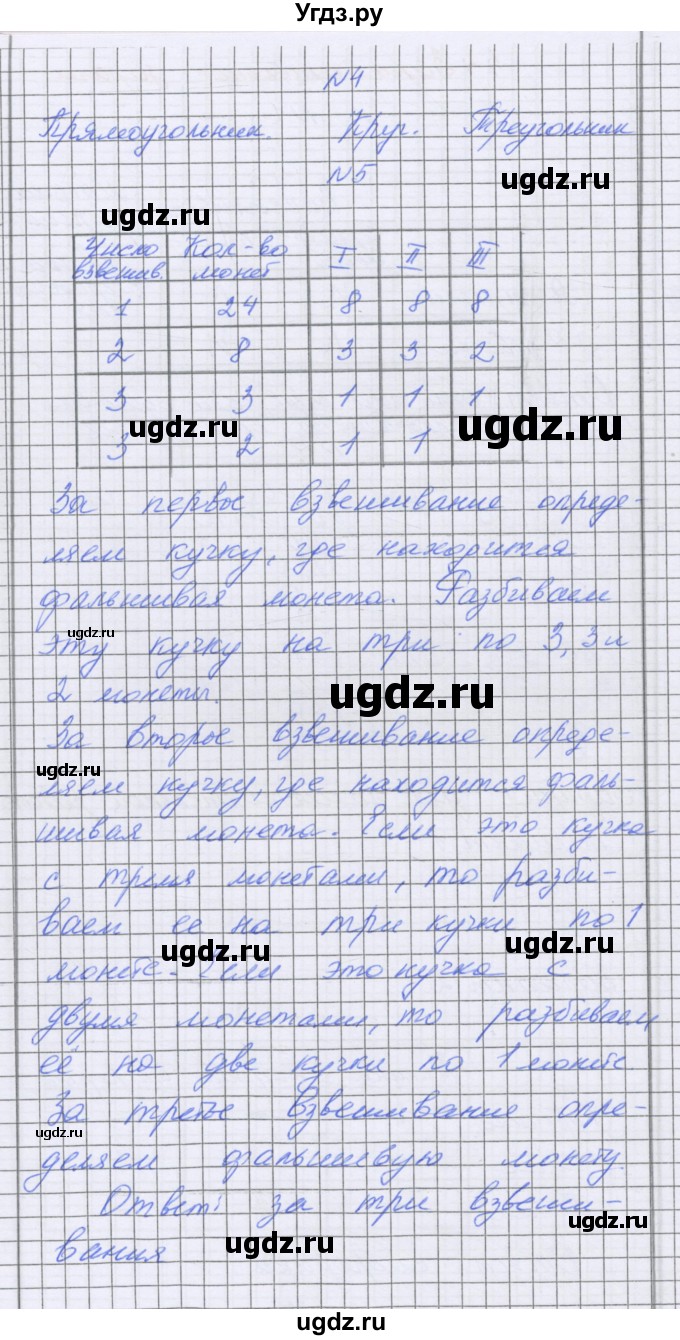 Угдз.ру
№4
Прямоугольник. Круг. Треугольник
№5
ugdz.ru
ugdz.ru
Число взвешив. Кол-во монет I II III
1 24 8 8 8
2 8 3 3 2
3 3 1 1 1
ugdz.ru
ugdz.ru
3 2 1 1
За первое взвешивание опреде-
ляем кучку, где находится
фальшивая монета. Разбиваем
ugdz.ru
эту кучку на три по 3, 3 и
2 монеты.
ugdz.ru
За второе взвешивание опреде-
ugdz.ru
ляем кучку, где находится фаль-
шивая монета. Если это кучка
с тремя монетами, то разби-
ваем ее на три кучки по 1
ugdz.ru
ugdz.ru
монете. Если это кучка с
двумя монетами, то разбиваем
её на две кучки по 1 монете.
За третье взвешивание опре-
ugdz.ru
деляем фальшивую монету.
Ответ: за три взвеши-
ugdz.ru
вания
ugdz.ru
ugdz.ru